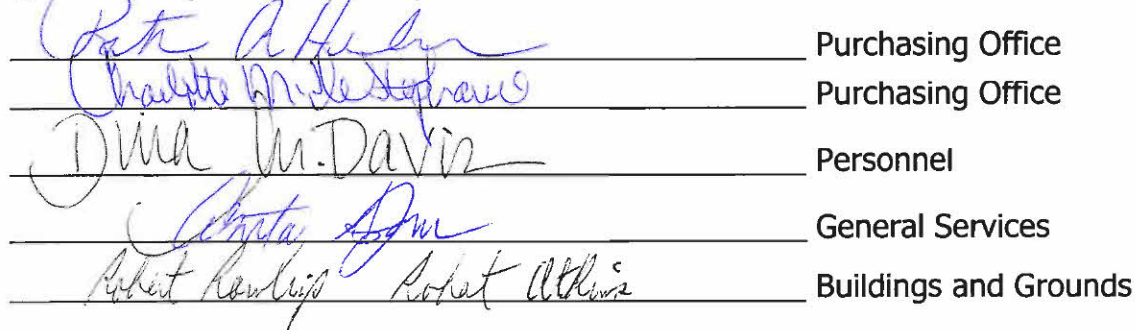 Purchasing Office
Charlotte M. DeStephanis Purchasing Office
Dina M. Davis Personnel
Anita General Services
Robert Rawlings Robert Atkins Buildings and Grounds